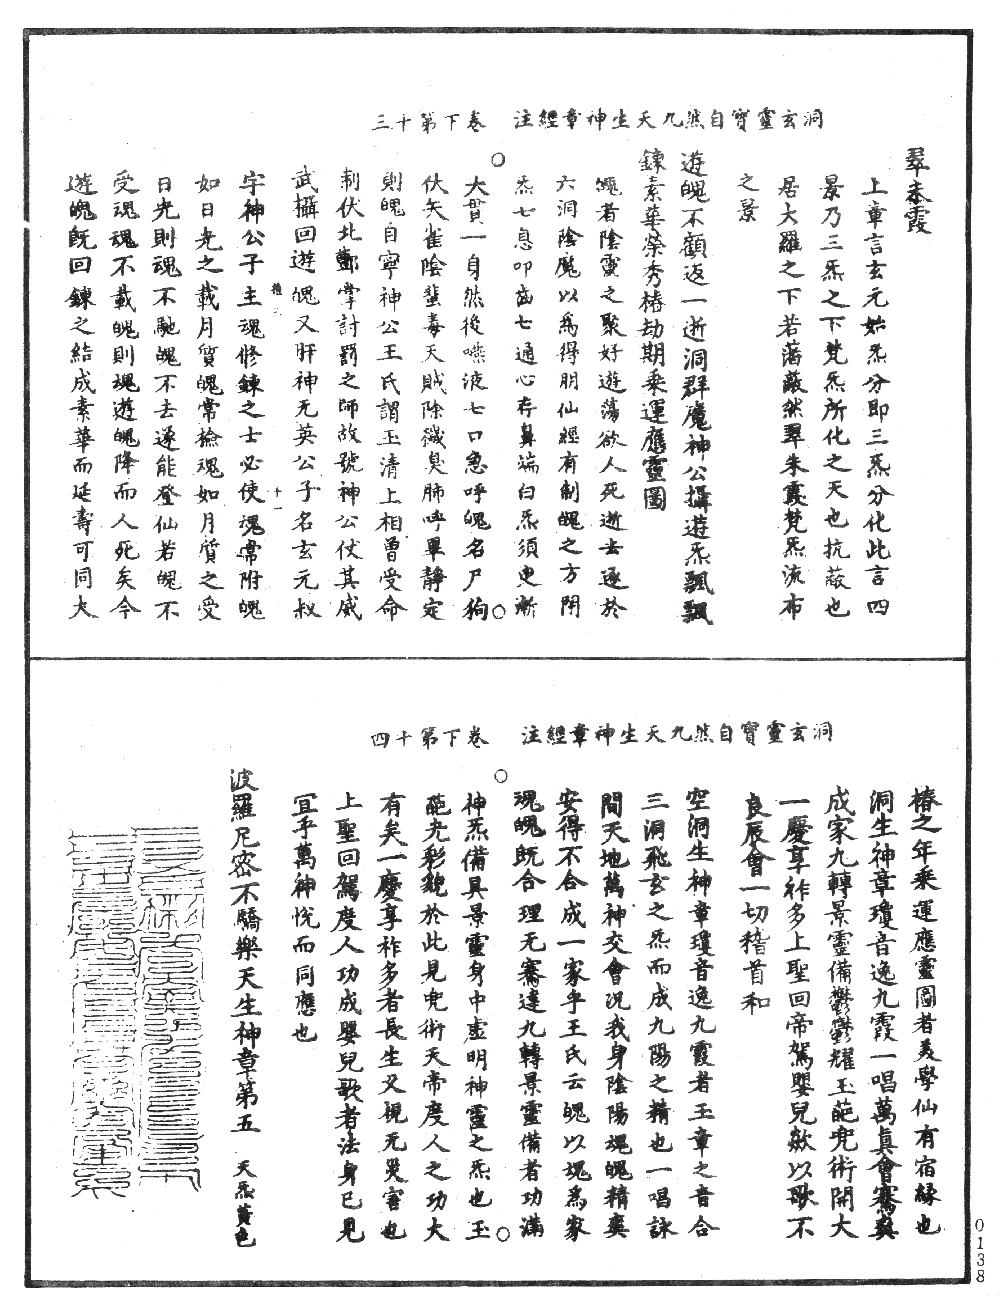 洞玄靈寶自然九天生神章經注　卷下第十三
翠朱霞
上章言玄元始炁分即三炁分化此言四
景乃三炁之下梵炁所化之天也抗蔽也
居大羅之下若蕩蔽然翠朱霞梵炁流布
之景
遊魄不顧返一逝洞群魔神公攝遊炁飄飄
鍊素華榮秀椿劫期乘運應靈圖
魄者陰靈之聚好遊蕩欲人死逝去逐於
六洞陰魔以為得朋仙經有制魄之方閉
炁七息叩齒七通心存鼻端白炁須臾漸
大貫一身然後嚥液七口急呼魄名尸狗
伏矢雀陰蜚毒天賊除穢臭肺呼畢靜定
則魄自寧神公王氏謂玉清上相曾受命
制伏北酆掌討罰之師故號神公仗其威
武攝回遊魄又肝神无英公子名玄元叔
十一
字神公子主魂修鍊之士必使魂常附魄
如日光之載月質魄常檢魂如月質之受
日光則魂不馳魄不去遂能登仙若魄不
受魂魂不載魄則魂遊魄降而人死矣今
遊魄既回鍊之結成素華而延壽可同大
洞玄靈寶自然九天生神章經注　卷下第十四
椿之年乘運應靈圖者美學仙有宿緣也
洞生神章瓊音逸九霞一唱萬真會騫爽
成家九轉景靈備鬱鬱耀玉葩兜術開大
一慶享祚多上聖回帝駕嬰兒歘以歌不
良辰會一切稽首和
空洞生神章瓊音逸九霞者玉章之音合
三洞飛玄之炁而成九陽之精也一唱詠
間天地萬神交會況我身陰陽魂魄精爽
安得不合成一家乎王氏云魄以魂為家
魂魄既合理无騫違九轉景靈備者功滿
神炁備具景靈身中虛明神靈之炁也玉
葩光彩貌於此見兜術天帝度人之功大
有矣一慶享祚多者長生久視无災害也
上聖回駕度人功成嬰兒歌者法身已見
宜乎萬神悅而同應也
波羅尼密不驕樂天生神章第五　天炁黃色
0138